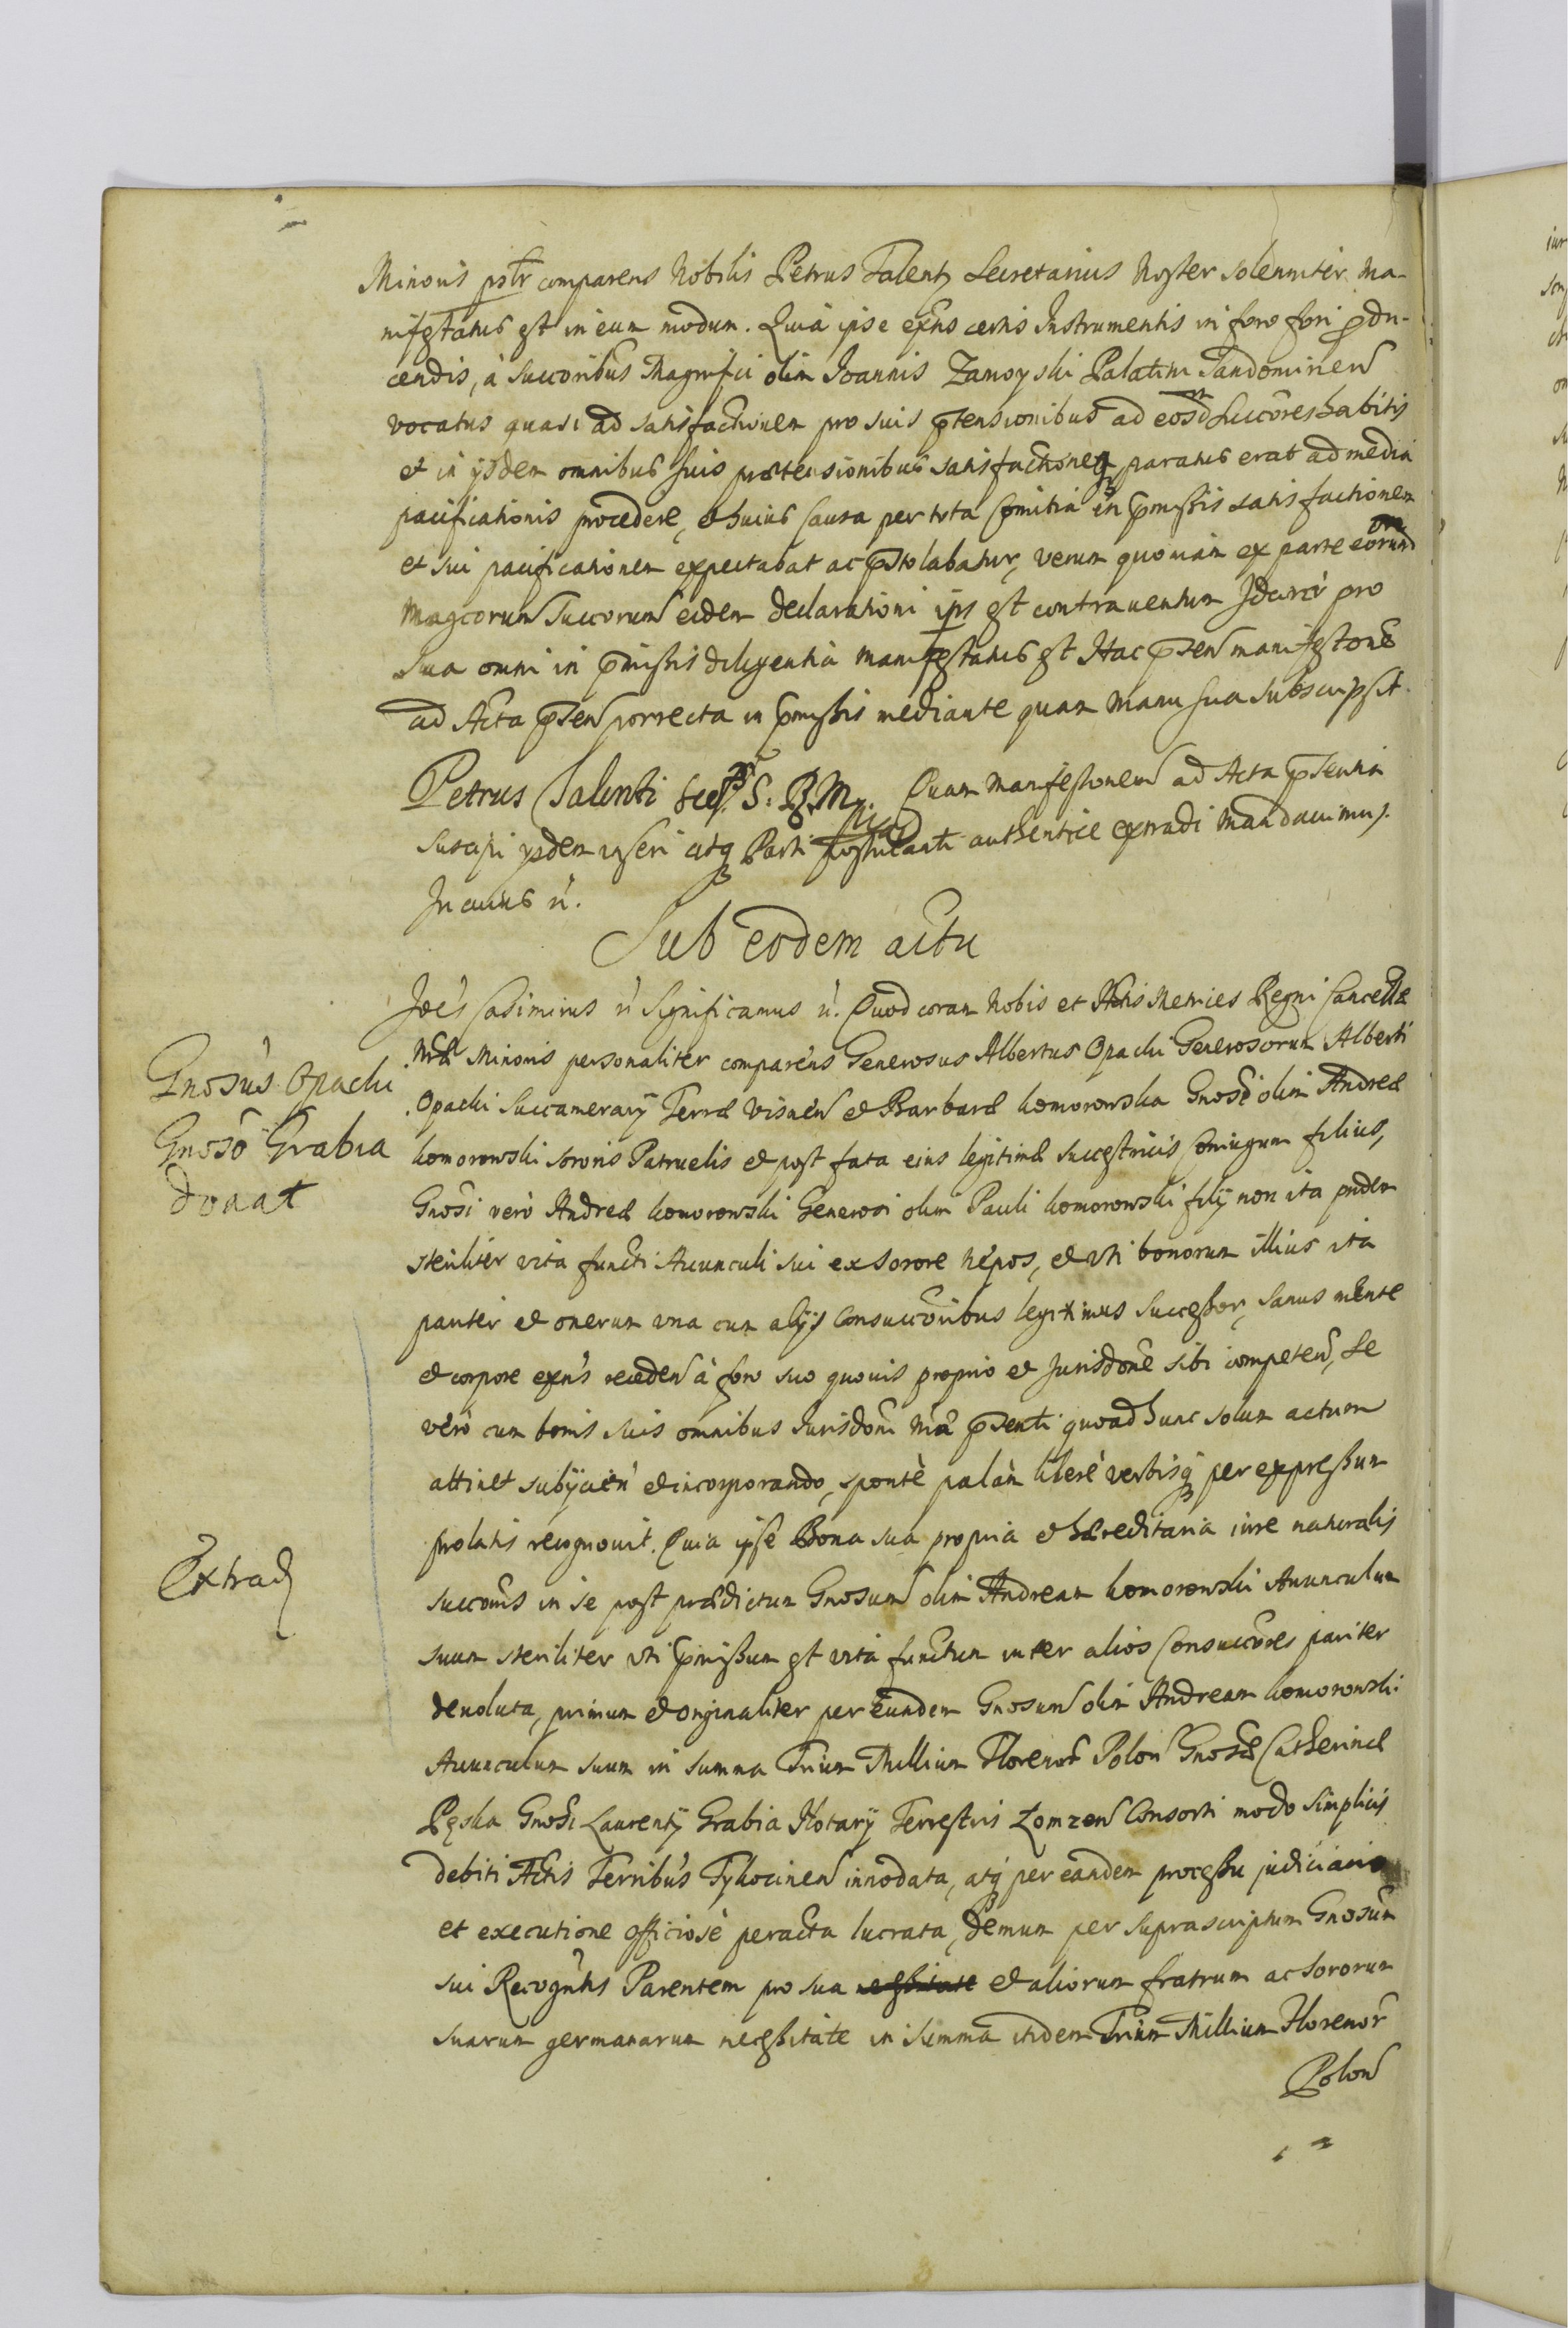 Minoris psltr comparens Nobilis Petrus Talenty Secretarius Noster solenniter Ma-
nifestatus est in eum modum. Quia ipse exns certis Instrumentis in foro fori pdu-
cendis, à Succoribus Magnifici olim Joannis Zamoyski Palatini Sandomirien
vocatus quasi ad satisfactionem pro suis ptensionibus ad eosd Succores habitis
et in ysdem omnibus suis prætensionibus satisfactioneq paratus erat ad media
pacificationis procedere, & huius causa per tota Comitia in pmissis satisfactionem
et sui pacificationem expectabat ac pstolabatur, verum quoniam ex parte eorund
Magcorum Succorum eidem declarationi ips est contrauentum Idcircò pro
sua omni in pmissis diligentia manifestatus est Hac psen manifestone
ad Acta psen porrecta in pmissis mediante quam manu sua subscripsit.
Petrus Talenti Secr S. R. M. Quam manifestonem ad Acta psentia
suscipi ysdem inseri atq Parti postulanti authentice extradi mandauimus.
In cuius rei.
Sub eodem actu
Joes Casimirus rc Significamus rc. Quod coram Nobis et Actis Metrices Regni Cancellæ
Nræ Minoris personaliter comparens Generosus Albertus Opacki Generosorum Alberti
Opacki Succamerarij Terræ Visnen & Barbaræ Komorowska Gnosi olim Andreæ
Komorowski sororis Patruelis & post fata eius legitimæ succestricis Coniugum filius,
Gnosi verò Andreæ Komorowski Generosi olim Pauli Komorowski filij non ita pridem
steriliter vita functi Auunculi sui ex sorore nepos, & vti bonorum illius ita
pariter & onerum vna cum alijs Consuccoribus legitimus Successor, sanus mente
& corpore exns receden à foro suo quouis proprio & Jurisdone sibi competen, se
verò cum bonis suis omnibus Jurisdoni Nræ psenti quoad hunc solum actum
attinet subijcien & incorporando, spontè palàm liberè verbisq per expressum
prolatis recognouit. Quia ipse Bona sua propria & hæreditaria iure naturalis
succonis in se post prædictum Gnosum olim Andream Komorowski Auunculum
suum steriliter vti pmissum est vita functum inter alios Consuccores pariter
deuoluta, primum & originaliter per eundem Gnosum olim Andream Komorowski
Auunculum suum in summa Trium Millium Florenor Polon Gnosæ Catherinæ
Pęska Gnosi Laurentij Grabia Notarij Terrestris Lomzen Consorti modo simplicis
debiti Actis Terribus Tykocinen innodata, atq per eandem processu judiciario
et executione officiosè peracta lucrata, demum per suprascriptum Gnosum
sui Recogntis Parentem pro sua necssitate & aliorum fratrum ac sororum
suarum germanarum necessitate in summa itidem Trium Millium Florenor
Polon
Gnosus Opacki
Gnoso Grabia
donat
Extrad